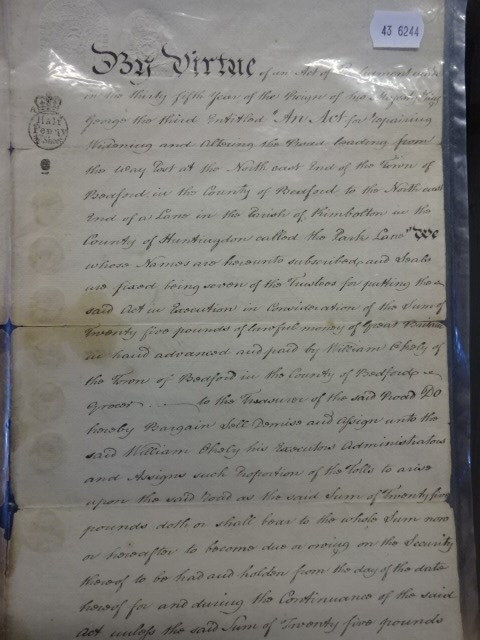 43 6244
By Virtue of an Act of Parliament made
in the thirty fifth Year of the Reign of his Majesty King
George the third Entitled "An Act for repairing
Widening and Altering the Road leading from
the Way Post at the North east End of the Town of
Bedford in the County of Bedford to the North east
End of a Lane in the Parish of Kimbolton in the
County of Huntingdon called the Park Lane" We
whose Names are hereunto subscribed and Seals
are fixed being seven of the Trustees for putting the
said Act in Execution in Consideration of the Sum of
Twenty five pounds of lawful money of Great Britain
in hand advanced and paid by William Okely of
the Town of Bedford in the County of Bedford
Grocer to the Treasurer of the said Road Do
hereby Bargain Sell Demise and Assign unto the
said William Okely his Executors Administrators
and Assigns such Proportion of the Tolls to arise
upon the said Road as the said Sum of Twenty five
pounds doth or shall bear to the whole Sum now
or hereafter to become due or owing on the Security
thereof to be had and holden from the day of the date
hereof for and during the Continuance of the said
Act unless the said Sum of Twenty five pounds